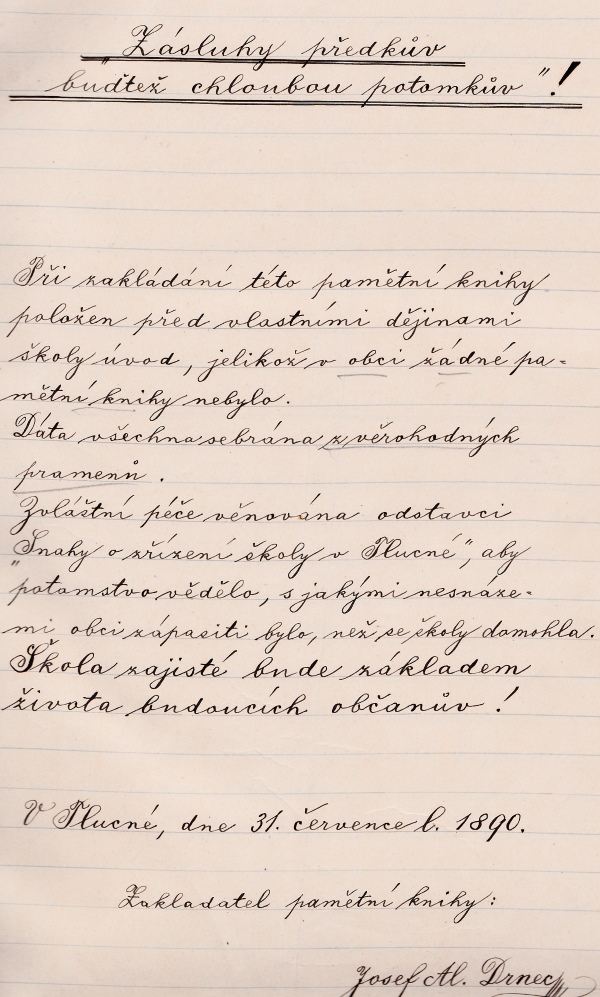 „Zásluhy předkův
buďtež chloubou potomkův"!
Při zakládání této pamětní knihy
položen před vlastními dějinami
školy úvod, jelikož v obci žádné pa-
mětní knihy nebylo.
Dáta všechna sebrána z věrohodných
pramenů.
Zvláštní péče věnována odstavci
„Snahy o zřízení školy v Tlucné", aby
potomstvo vědělo, s jakými nesnáze-
mi obci zápasiti bylo, než se školy domohla.
Škola zajisté bude základem
života budoucích občanův!
V Tlucné, dne 31. července l. 1890.
Zakladatel pamětní knihy:
Josef Al. Drnec